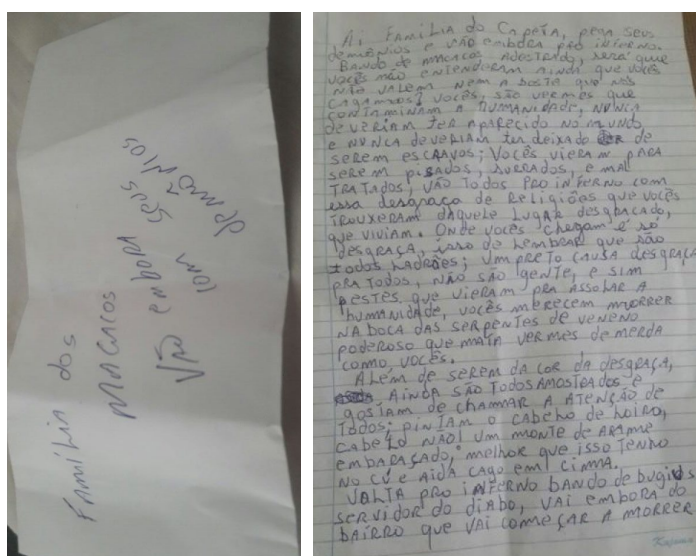 FAMÍLIA DOS
MACACOS
VÃO EMBORA COM SEUS
DEMÔNIOS
AI, FAMÍLIA DO CAPETA, PEGA SEUS
DEMÔNIOS E VÃO EMBORA PRO INFERNO.
BANDO DE MACACOS ADESTRADO, SERÁ QUE
VOCÊS NÃO ENTENDERAM AINDA QUE VOCÊS
NÃO VALEM NEM A BOSTA QUE NÓS
CAGAMOS? VOCÊS, SÃO VERMES QUE
CONTAMINAM A HUMANIDADE, NUNCA
DEVERIAM TER APARECIDO NO MUNDO
E NUNCA DEVERIAM TER DEIXADO DE
SEREM ESCRAVOS; VOCÊS VIERAM PARA
SEREM PISADOS, SURRADOS, E MAL
TRATADOS, VÃO TODOS PRO INFERNO COM
ESSA DESGRAÇA DE RELIGIÕES QUE VOCÊS
TROUXERAM DAQUELE LUGAR DESGRAÇADO,
QUE VIVIAM. ONDE VOCÊS CHEGAM É SÓ
DESGRAÇA, ISSO DE LEMBRAR QUE SÃO
TODOS LADRÕES; UM PRETO CAUSA DESGRAÇA
PRA TODOS, NÃO SÃO GENTE, E SIM
PESTES QUE VIERAM PRA ASSOLAR A
HUMANIDADE, VOCÊS MERECEM MORRER
NA BOCA DAS SERPENTES DE VENENO
PODEROSO QUE MATA VERMES DE MERDA
COMO, VOCÊS.
ALÉM DE SEREM DA COR DA DESGRAÇA,
AINDA SÃO TODOS AMOSTRADOS E
GOSTAM DE CHAMAR A ATENÇÃO DE
TODOS; PINTAM O CABELO DE LOIRO,
CABELO NÃO! UM MONTE DE ARAME
EMBARAÇADO, MELHOR QUE ISSO TENHO
NO CÚ E AIDA CAGO EM CIMA.
VOLTA PRO INFERNO BANDO DE BUGIOS
SERVIDOR DO DIABO, VAI EMBORA DO
BAIRRO QUE VAI COMEÇAR A MORRER